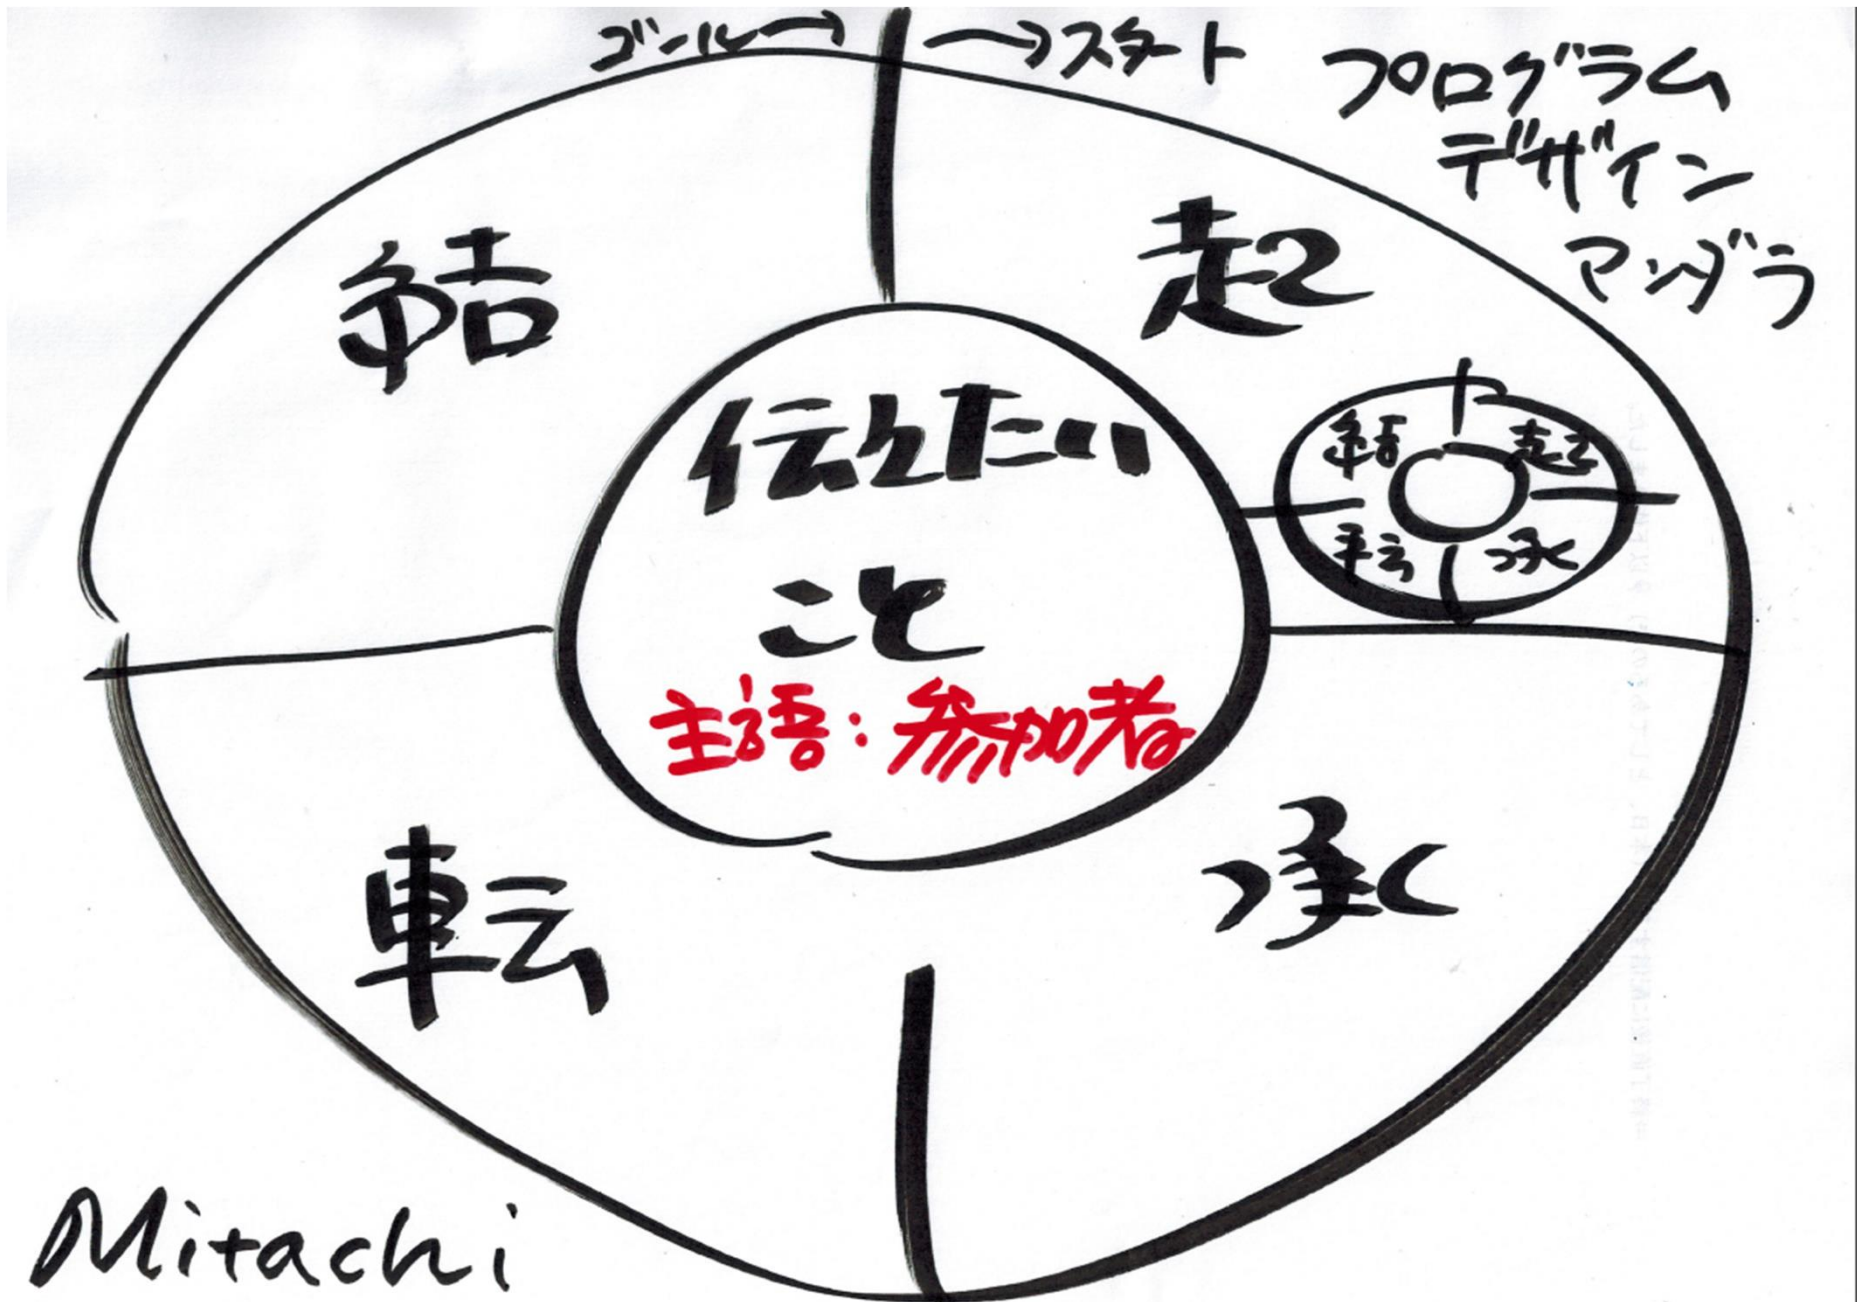 ゴール→
→スタート
プログラム
デザイン
マンダラ
結
起
伝えたい
こと
主語：参加者
結
起
転
承
転
承
Mitachi